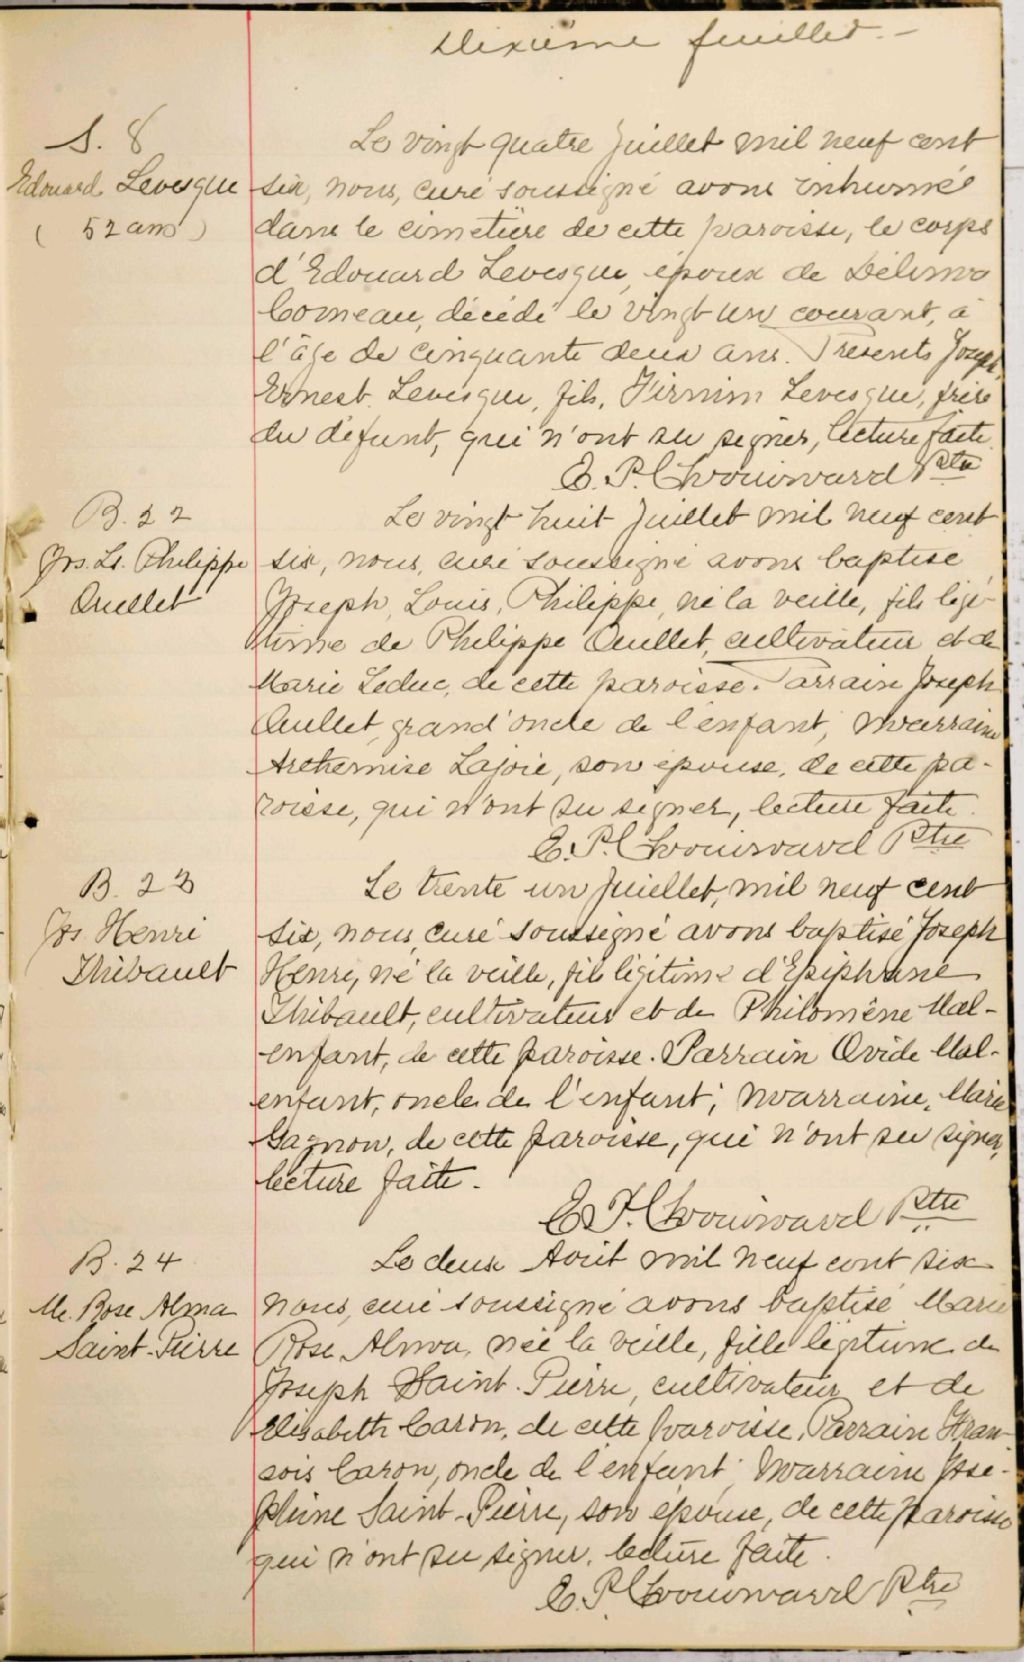 Dixième feuillet.-
S. 8
Edouard Levesque
( 52 ans )
Le vingt quatre Juillet mil neuf cent
six, nous, curé soussigné avons inhumé
dans le cimetière de cette paroisse, le corps
d'Edouard Levesque, époux de Délima
Comeau, décédé le vingt un courant, à
l'âge de cinquante deux ans. Présents Joseph
Ernest Levesque, fils, Firmin Levesque, frère
du défunt, qui n'ont su signer, lecture faite.
E. P. Chouinard Ptre
B. 22
Jos. Ls. Philippe
Ouellet
Le vingt huit Juillet mil neuf cent
six, nous, curé soussigné avons baptisé
Joseph, Louis, Philippe, né la veille, fils légi-
time de Philippe Ouellet, cultivateur et de
Marie Leduc, de cette paroisse. Parrain Joseph
Ouellet, grand'oncle de l'enfant, marraine
Archemise Lajoie, son épouse, de cette pa-
roisse, qui n'ont su signer, lecture faite.
E. P. Chouinard Ptre
B. 23
Jos Henri
Thibault
Le trente un Juillet, mil neuf cent
six, nous, curé soussigné avons baptisé Joseph
Henri, né la veille, fils légitime d'Epiphane
Thibault, cultivateur et de Philomène Mal-
enfant, de cette paroisse. Parrain Ovide Mal-
enfant, oncle de l'enfant; marraine, Marie
Gagnon, de cette paroisse, qui n'ont su signer,
lecture faite.
E. P. Chouinard Ptre
B. 24
M. Rose Alma
Saint-Pierre
Le deux Août mil neuf cent six
nous, curé soussigné avons baptisé Marie
Rose Alma, née la veille, fille légitime de
Joseph Saint-Pierre, cultivateur et de
Elisabeth Caron, de cette paroisse, Parrain Fran-
çois Caron, oncle de l'enfant; Marraine José-
phine Saint-Pierre, son épouse, de cette paroisse
qui n'ont su signer, lecture faite.
E. P. Chouinard Ptre